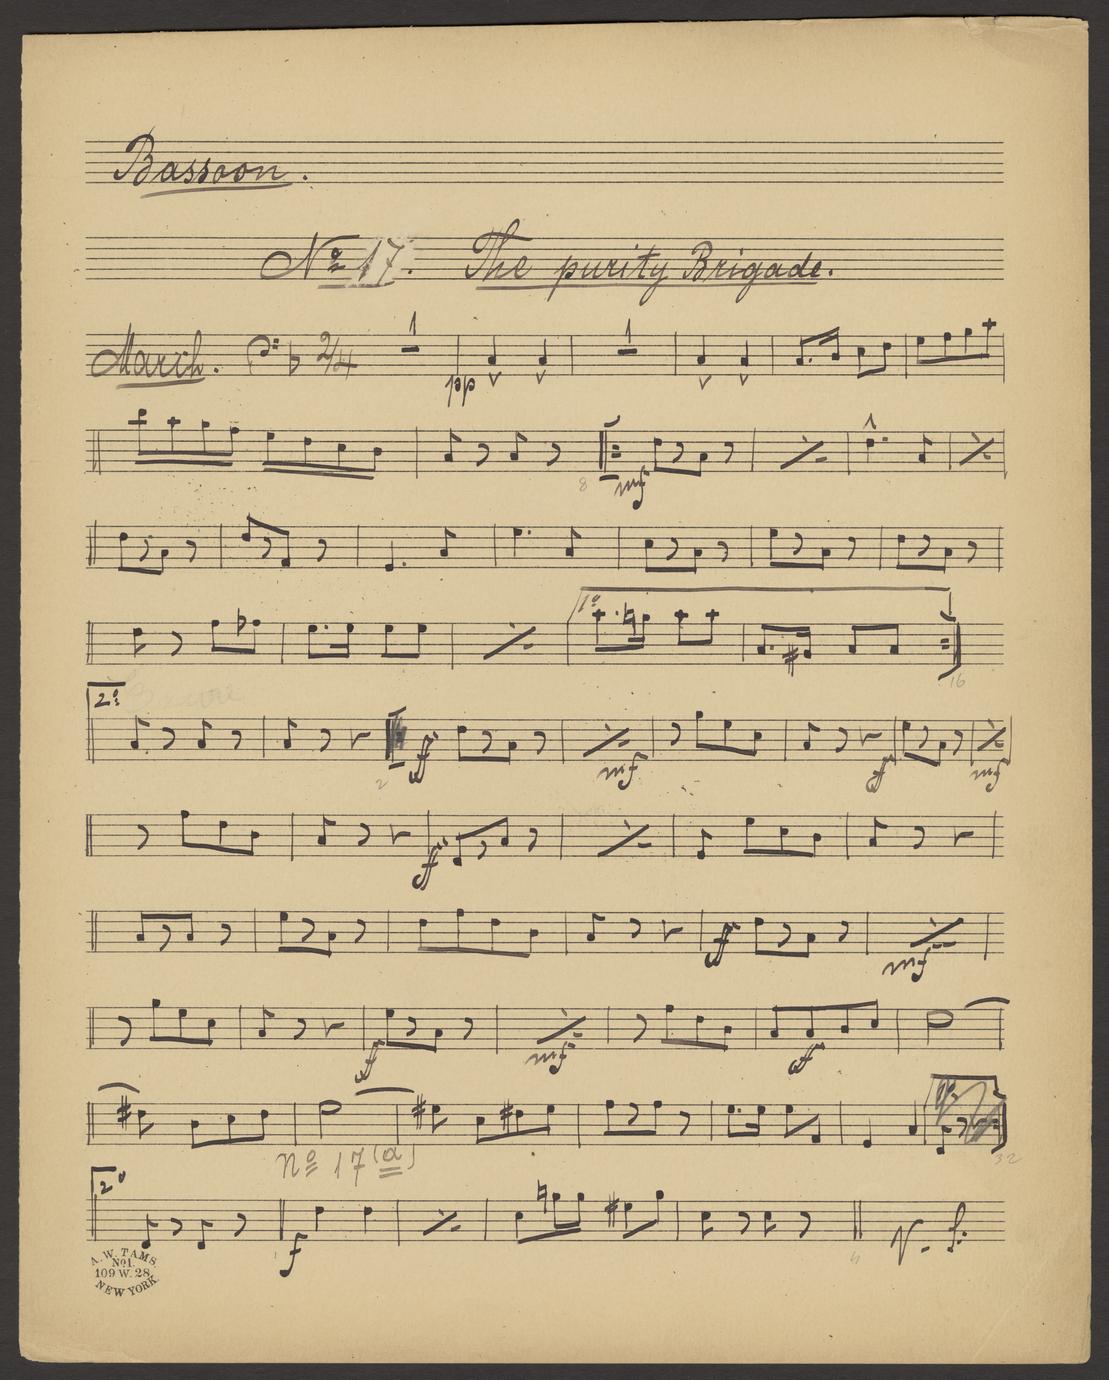 Bassoon.
No 17. The purity Brigade.
March. 2/4 1 1
pp
8 mf
1o
16
2o
2 ff mf ff mf
ff
ff mf
ff mf ff
No 17 (a)
32
2o
f V. S.
A. W. TAMS
No1.
109 W. 28.
NEW YORK